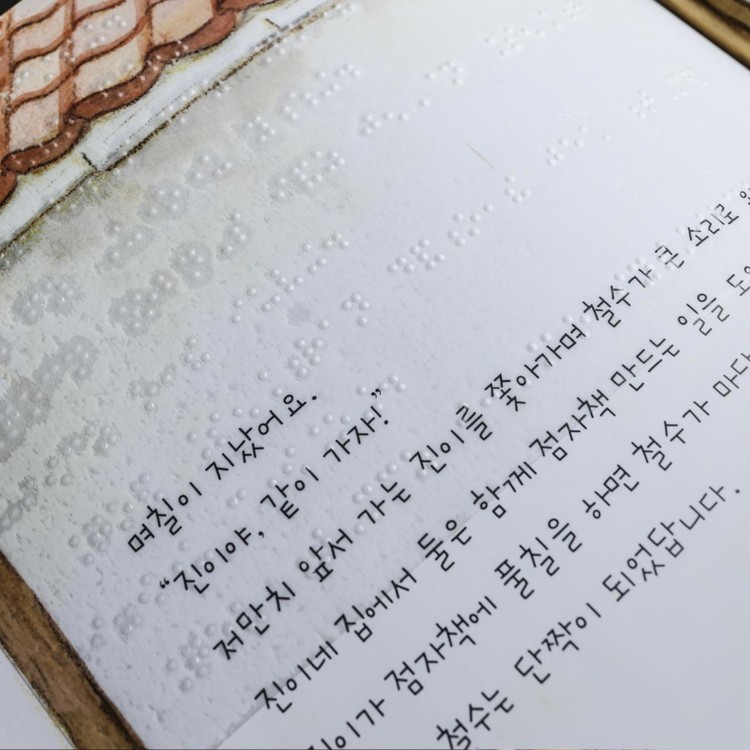 며칠이 지났어요.
“진이야, 같이 가자!”
저만치 앞서 가는 진이를 쫓아가며 철수가 큰 소리로
진이네 집에서 둘은 함께 점자책 만드는 일을
진이가 점자책에 풀칠을 하면 철수가
철수는 단짝이 되었답니다.